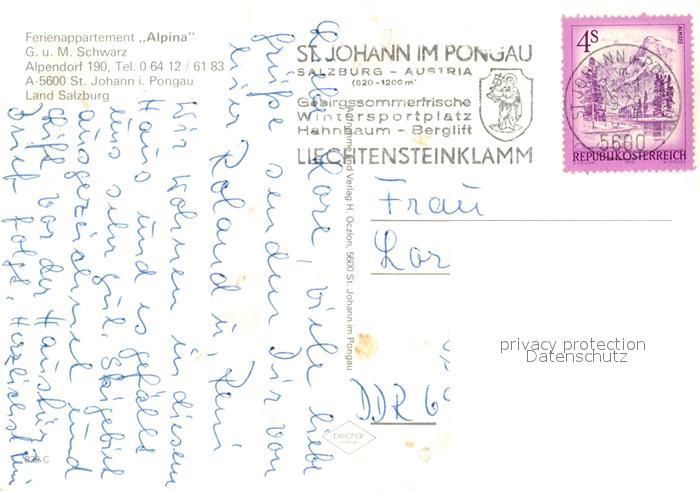 Ferienappartement „Alpina"
G. u. M. Schwarz
Alpendorf 190, Tel. 0 64 12 / 61 83
A-5600 St. Johann i. Pongau
Land Salzburg
ST. JOHANN IM PONGAU
SALZBURG - AUSTRIA
(620-1200m)
Gebirgssommerfrische
Wintersportplatz
Hahnbaum - Berglift
LIECHTENSTEINKLAMM
4S
ALMSEE
ST. JOHANN IM PO
5600
REPUBLIK ÖSTERREICH
Liebe Lore, viele liebe
Grüße senden Dir von
hier Roland u.
Wir wohnen in diesem
Haus und es gefällt
uns sehr gut. Skigebiet
ausgezeichnet und
Lift vor der Haustür.
Brief folgt. Herzlichst
und Verlag H. Oczlon, 5600 St. Johann im Pongau
Frau
Lor
DDR 69
privacy protection
Datenschutz
832 C